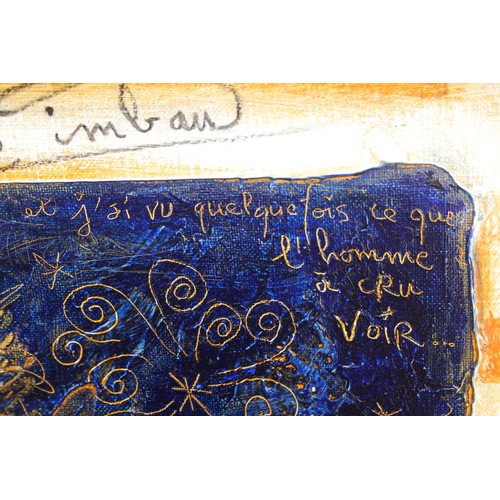 et j'ai vu quelquefois ce que
l'homme
à cru
VOIR...